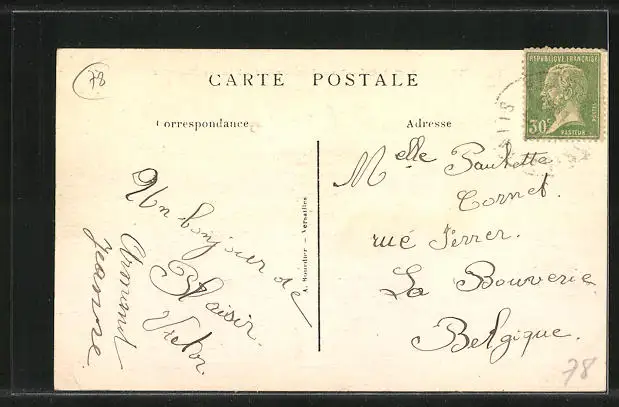 78
CARTE POSTALE
Correspondance
Adresse
REPUBLIQUE FRANÇAISE
30c
POSTES
PASTEUR
Melle Paulette
Cornet.
rue Ferrer.
La Bouverie
Belgique.
Un bonjour de
Plaisir.
Victor
Armand
Jeanne
A. Bourdier - Versailles
78